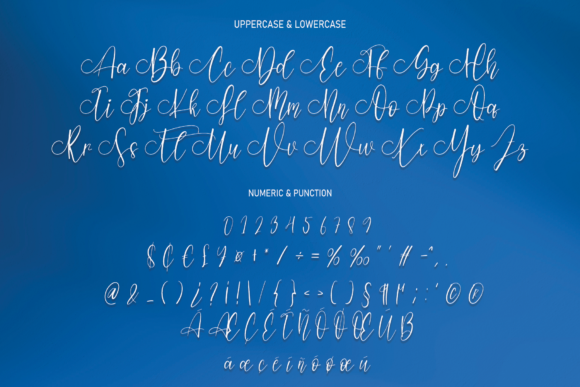 UPPERCASE & LOWERCASE
Aa Bb Cc Dd Ee Ff Gg Hh
Ii Jj Kk Ll Mm Nn Oo Pp Qq
Rr Ss Tt Uu Vv Ww Xx Yy Zz
NUMERIC & PUNCTION
0 1 2 3 4 5 6 7 8 9
$ ¢ € £ ¥ ¤ + * / ÷ = % ‰ " ' # - ^ , .
@ & _ ( ) ¿ ? ¡ ! \ / { } < > ( ) § ¶ ; : ' © ®
À Æ Ç É Î Ñ Ô Ø Œ Ú
á æ ç é í ñ ô ø œ ú